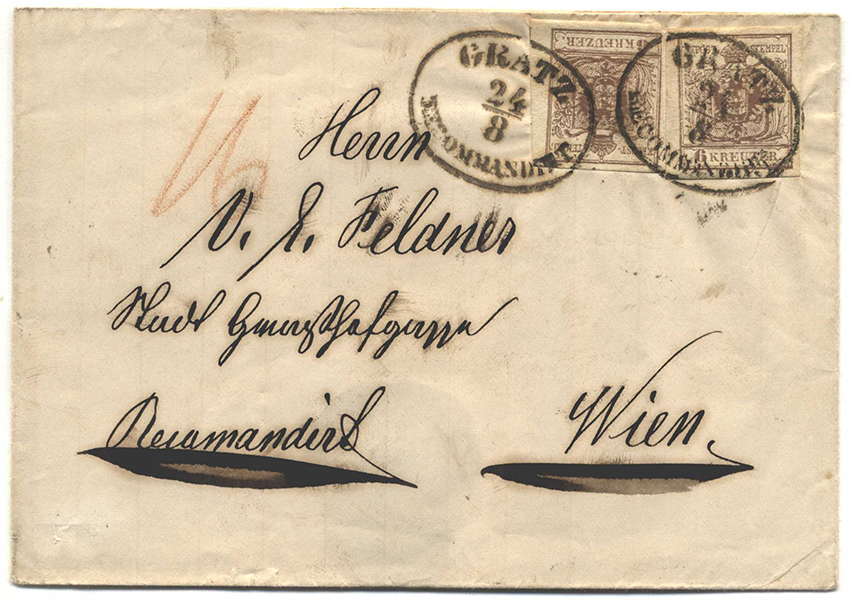 GRATZ
24/8
RECOMMANDIRT
6 KREUZER
GRATZ
24/8
RECOMMANDIRT
STEMPEL
6 KREUZER
Herrn
V. E. Feldner
Stadt
Recomandirt
Wien.